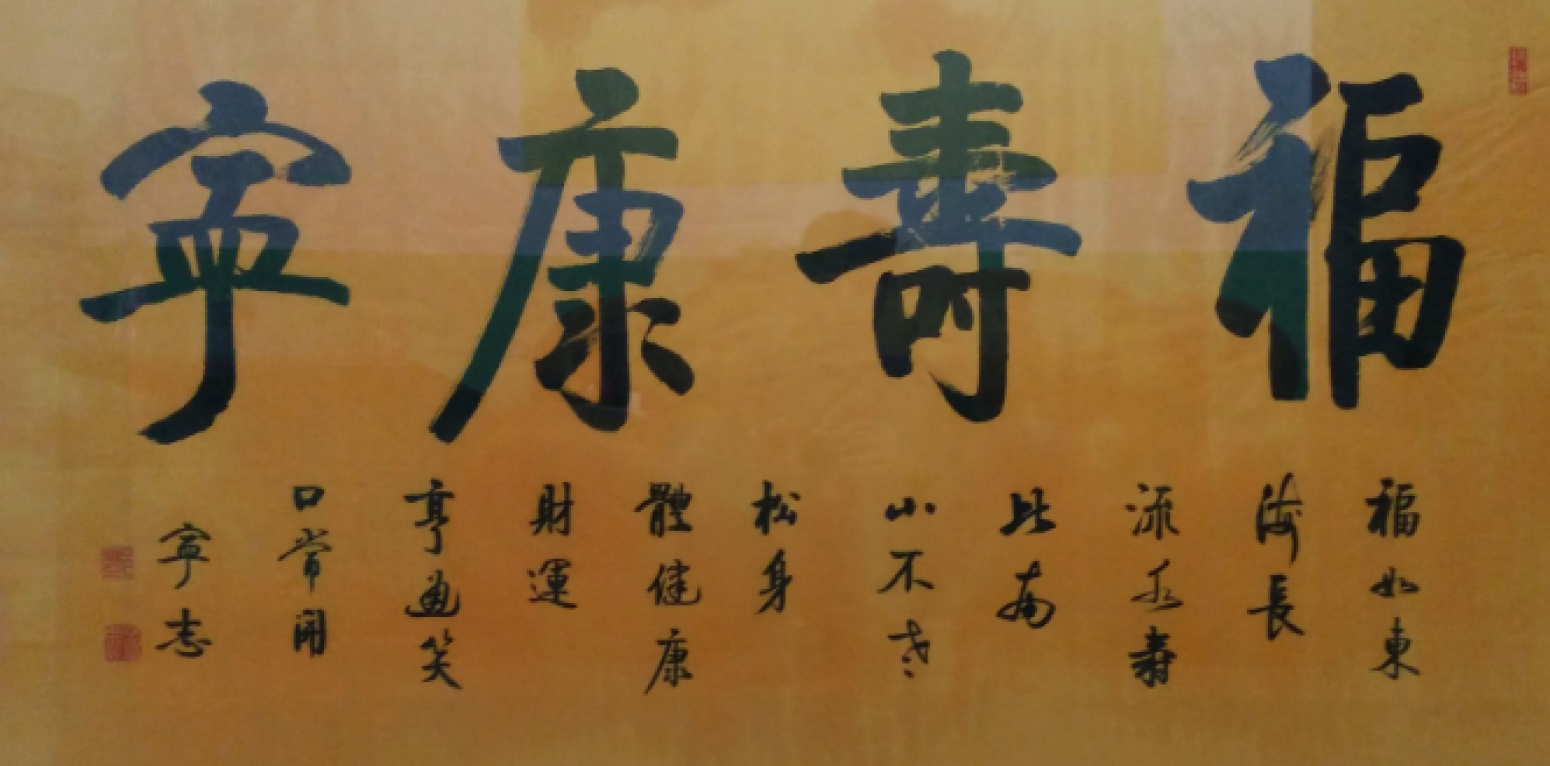 福壽康寧
福如東
海長
流水壽
比南
山不老
松身
體健康
財運
亨通笑
口常開
寧志